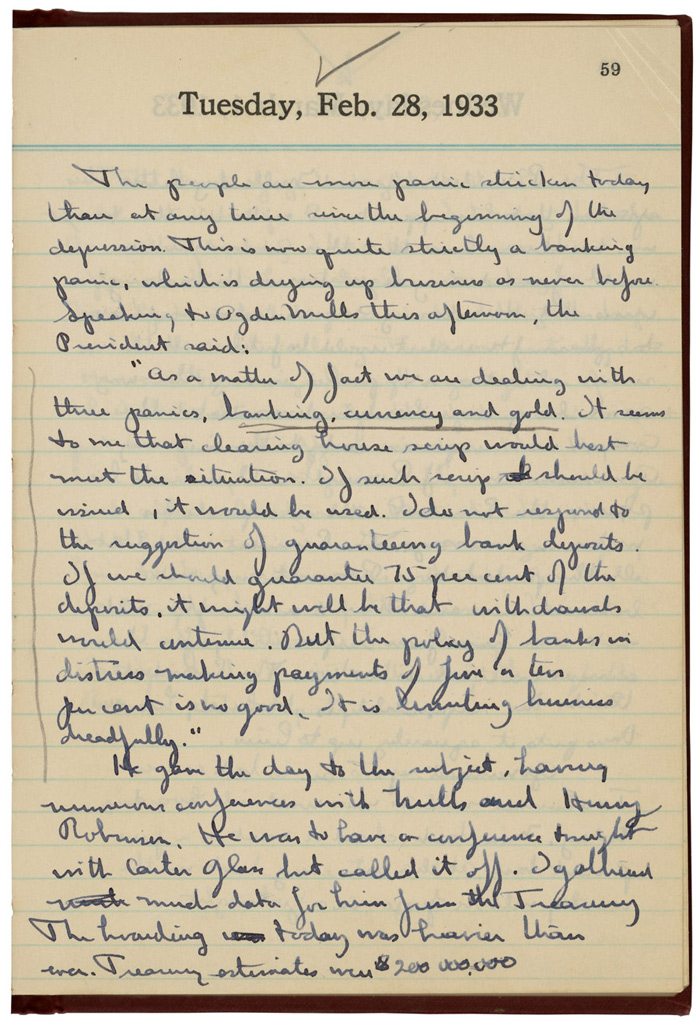 59
Tuesday, Feb. 28, 1933
The people are more panic stricken today
than at any time since the beginning of the
depression. This is now quite strictly a banking
panic, which is drying up business as never before.
Speaking to Ogden Mills this afternoon, the
President said:
"As a matter of fact we are dealing with
three panics, banking, currency and gold. It seems
to me that clearing house scrip would best
meet the situation. If such scrip should be
issued, it would be used. I do not respond to
the suggestion of guaranteeing bank deposits.
If we should guarantee 75 per cent of the
deposits, it might well be that withdrawals
would continue. But the policy of banks in
distress making payments of five or ten
per cent is no good. It is limiting business
dreadfully."
He gave the day to the subject, having
numerous conferences with Mills and Henry
Robinson. He was to have a conference tonight
with Carter Glass but called it off. I gathered
much data for him from the Treasury
The hoarding today was heavier than
ever. Treasury estimates were $200,000,000